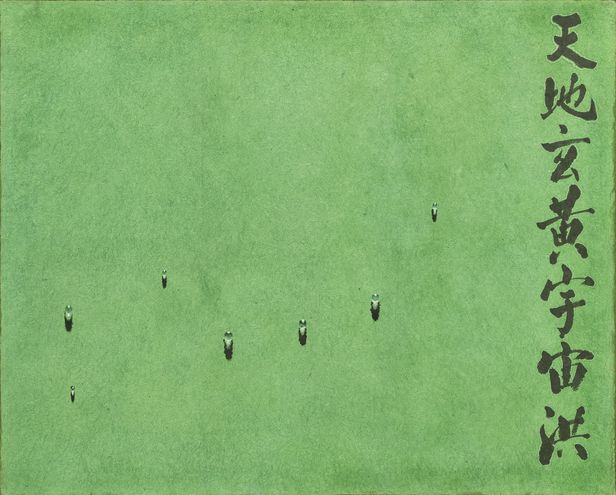 天地玄黃宇宙洪